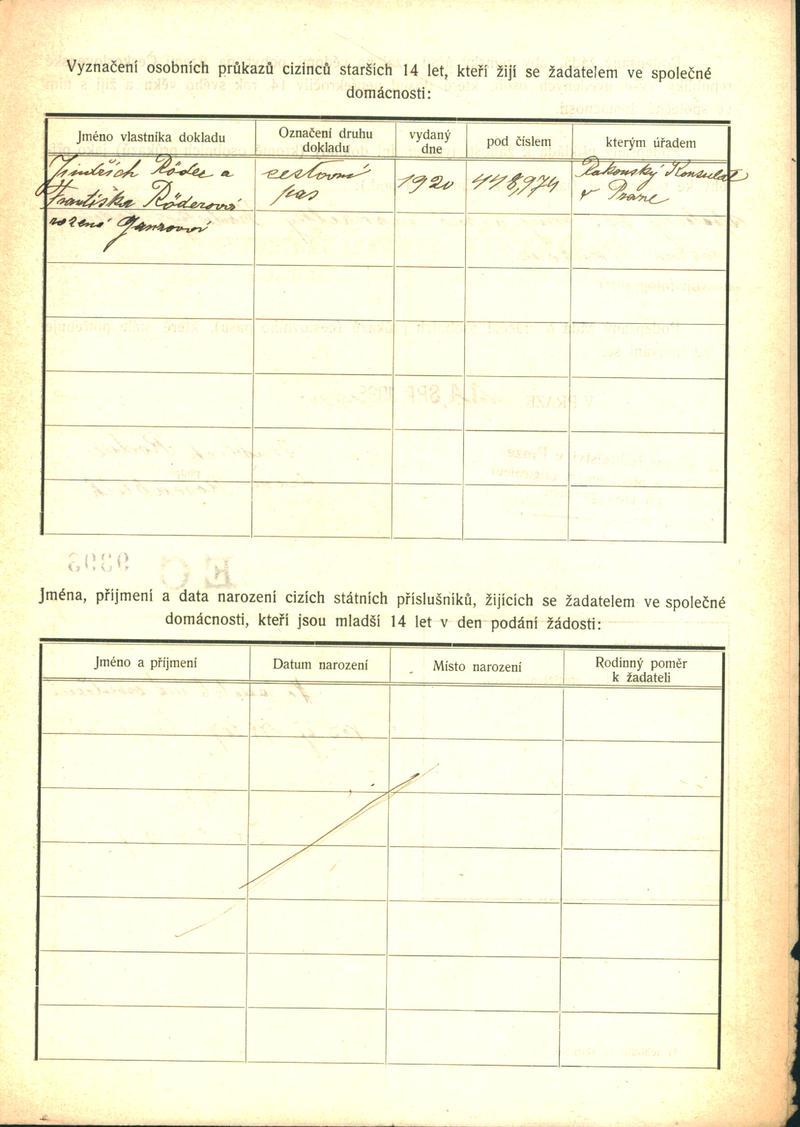 Vyznačení osobních průkazů cizinců starších 14 let, kteří žijí se žadatelem ve společné
domácnosti:
Jméno vlastníka dokladu
Označení druhu
dokladu
vydaný
dne
pod číslem
kterým úřadem
Jindřich Röder a
Františka Röderová
rozená
cestovní
pas
1920
448,974
Rakouský Konsulat
v Praze
9393
Jména, příjmení a data narození cizích státních příslušníků, žijících se žadatelem ve společné
domácnosti, kteří jsou mladší 14 let v den podání žádosti:
Jméno a příjmení
Datum narození
Místo narození
Rodinný poměr
k žadateli